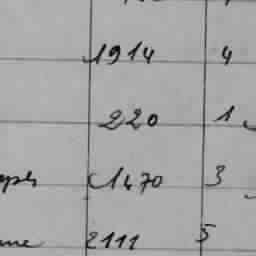 1914 4
220 1
1470 3
2111 5